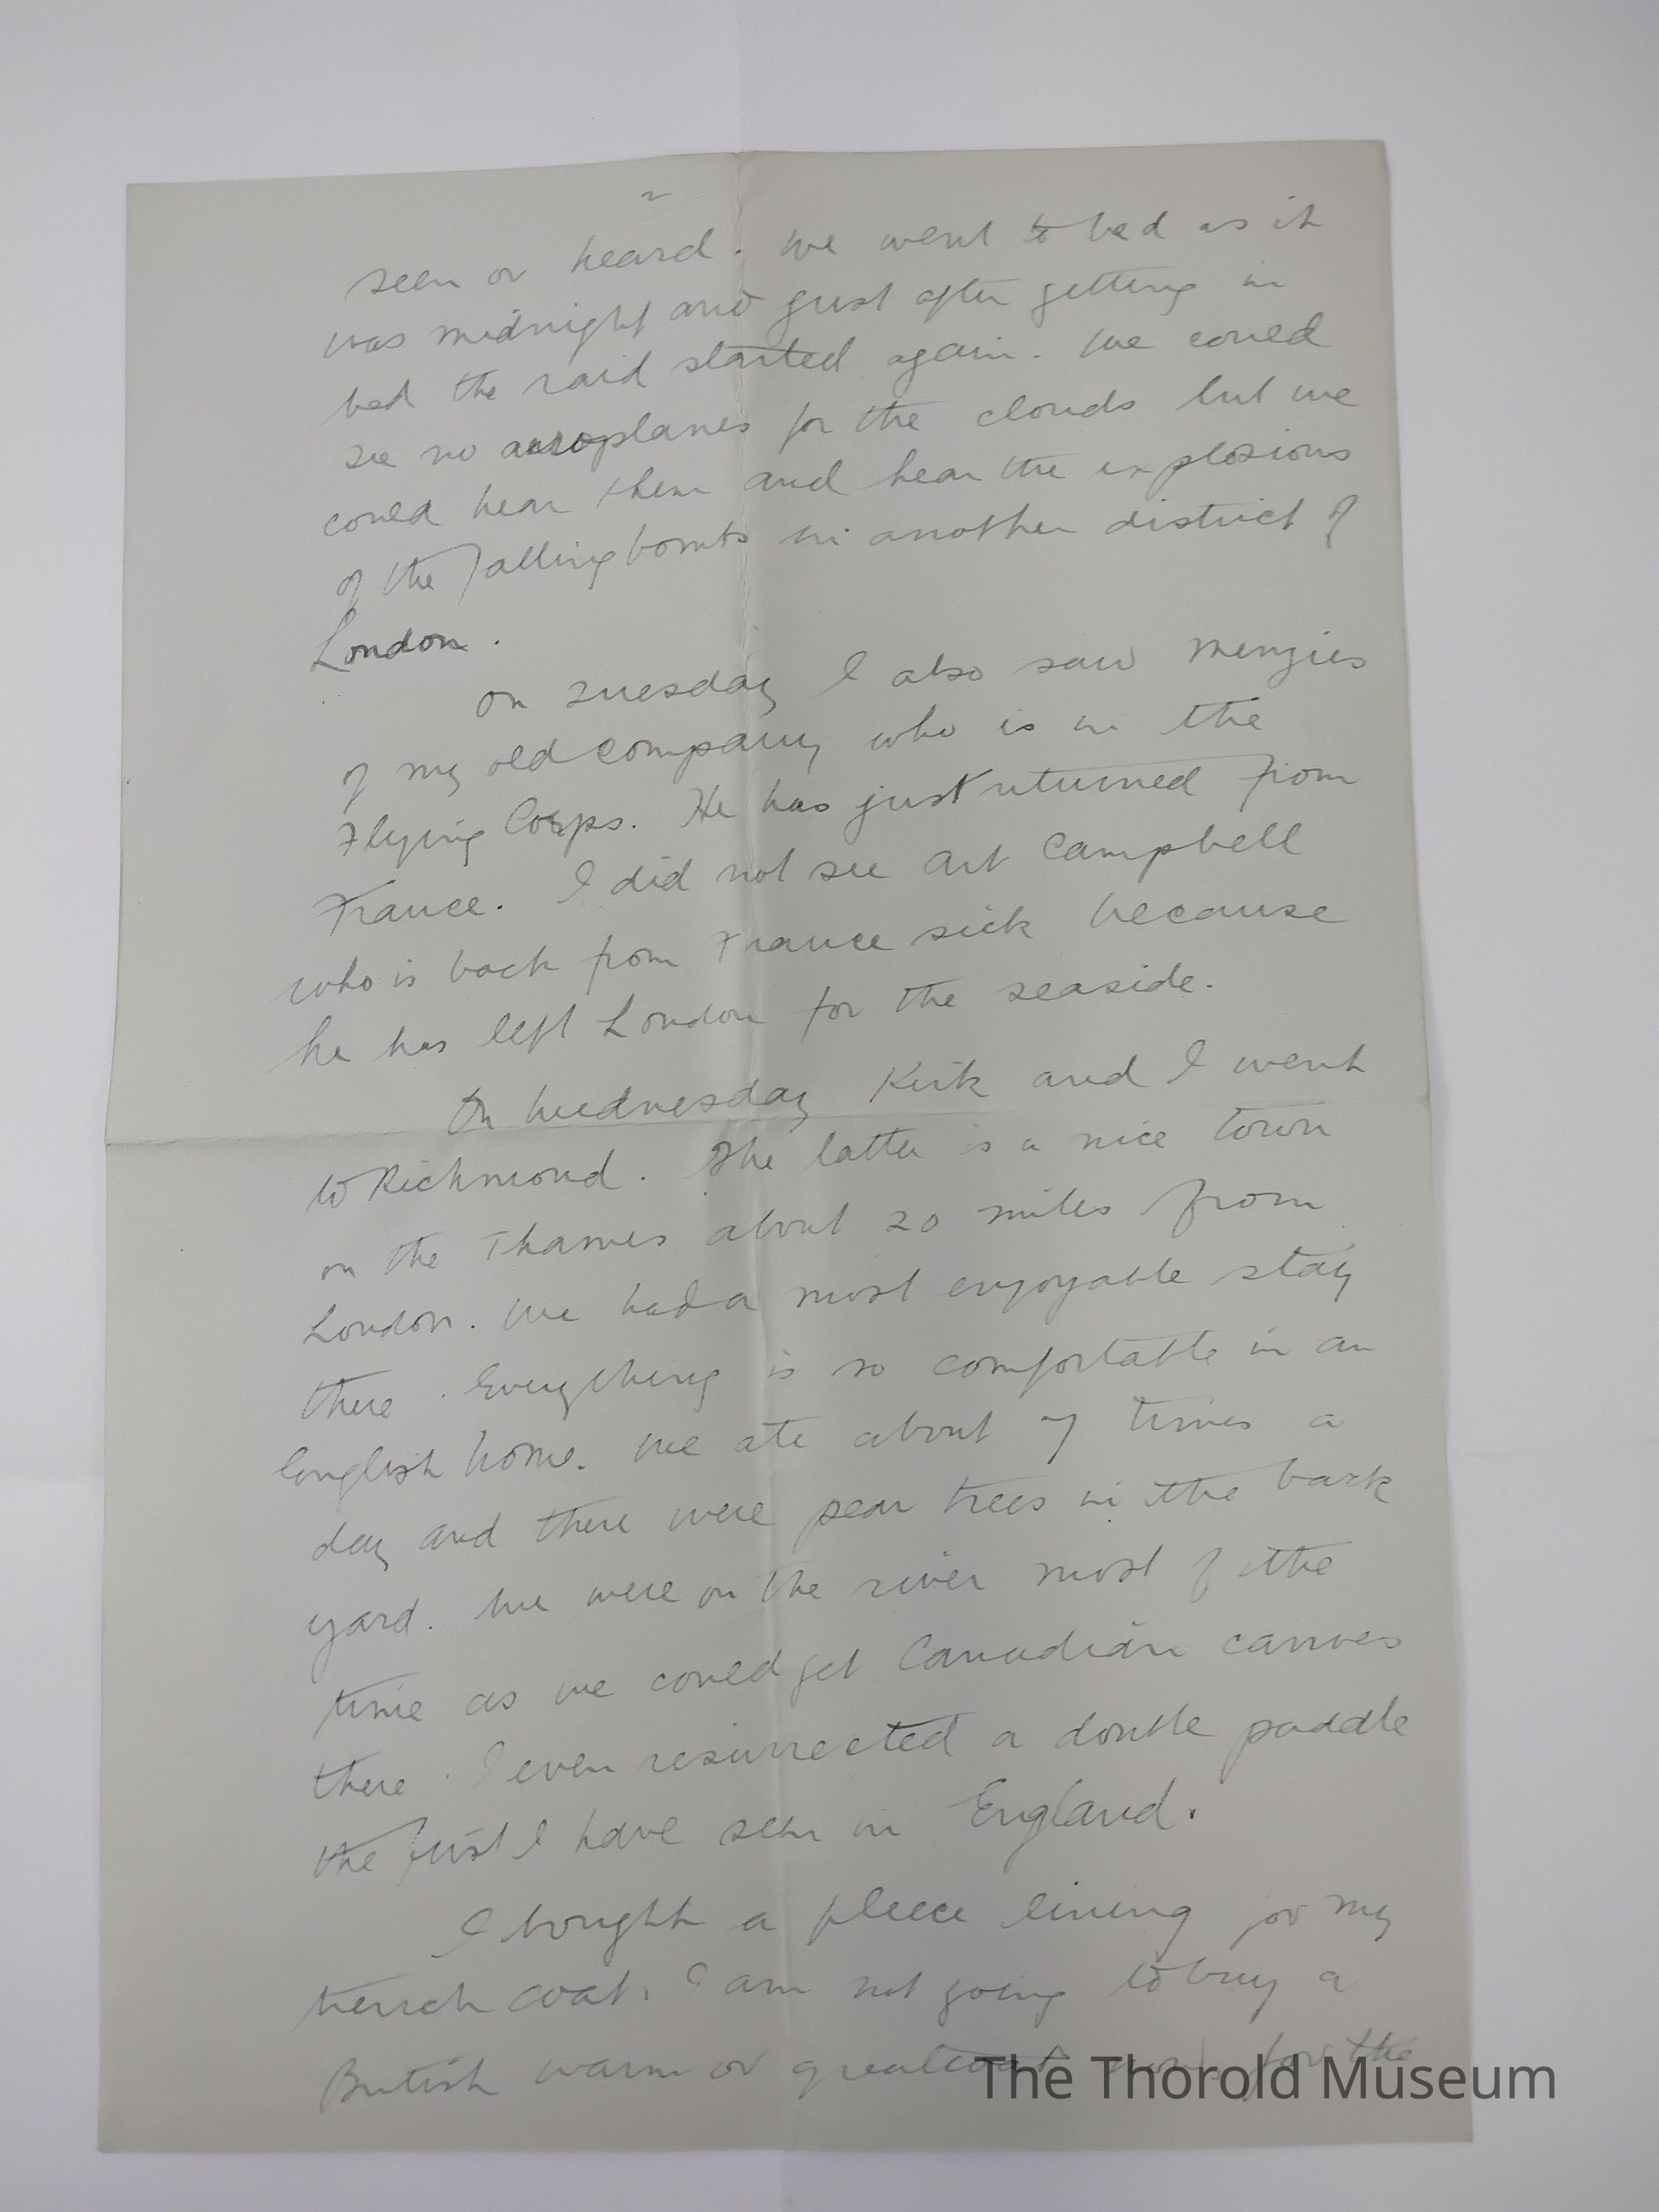 2
seen or heard. We went to bed as it
was midnight and just after getting in
bed the raid started again. We could
see no aeroplanes for the clouds but we
could hear them and hear the explosions
of the falling bombs in another district of
London.
On Tuesday I also saw Menzies
of my old company who is in the
Flying Corps. He has just returned from
France. I did not see Art Campbell
who is back from France sick because
he has left London for the seaside.
On Wednesday Kirk and I went
to Richmond. The latter is a nice town
on the Thames about 20 miles from
London. We had a most enjoyable stay
there. Everything is so comfortable in an
English home. We ate about 7 times a
day and there were pear trees in the back
yard. We were on the river most of the
time as we could get Canadian canoes
there. I even resurrected a double paddle
the first I have seen in England.
I bought a fleece lining for my
trench coat. I am not going to buy a
British warm or greatcoat now for the
The Thorold Museum